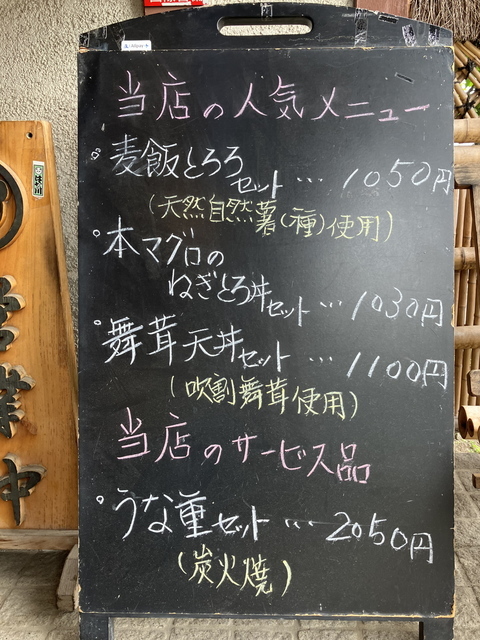 当店の人気メニュー
。麦飯とろろセット … 1050円
(天然自然薯(種)使用)
。本マグロの
ねぎとろ丼セット … 1030円
。舞茸天丼セット … 1100円
(吹割舞茸使用)
当店のサービス品
。うな重セット … 2050円
(炭火焼)
営業中